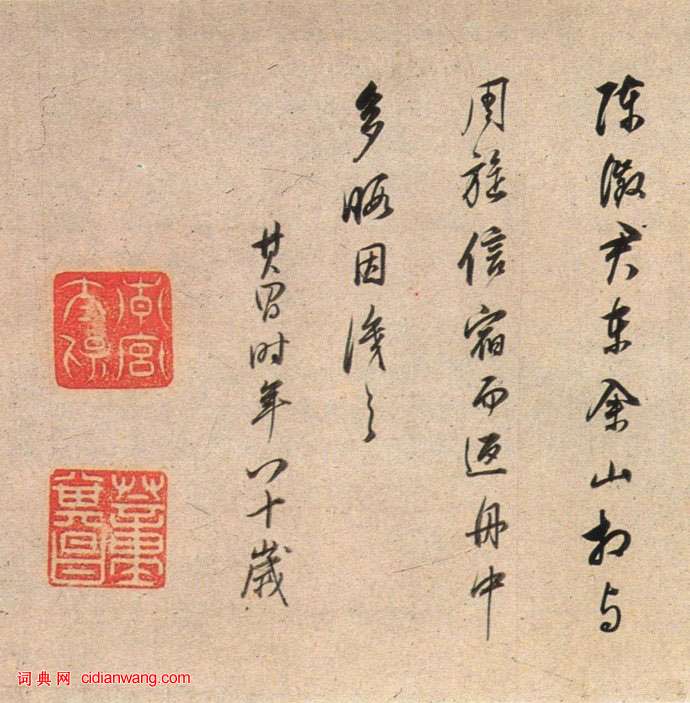 陳徵君東佘山相與
周旋信宿而返舟中
多暇因之
其昌時年八十歲
南宮大
董其昌
词典网 cidianwang.com